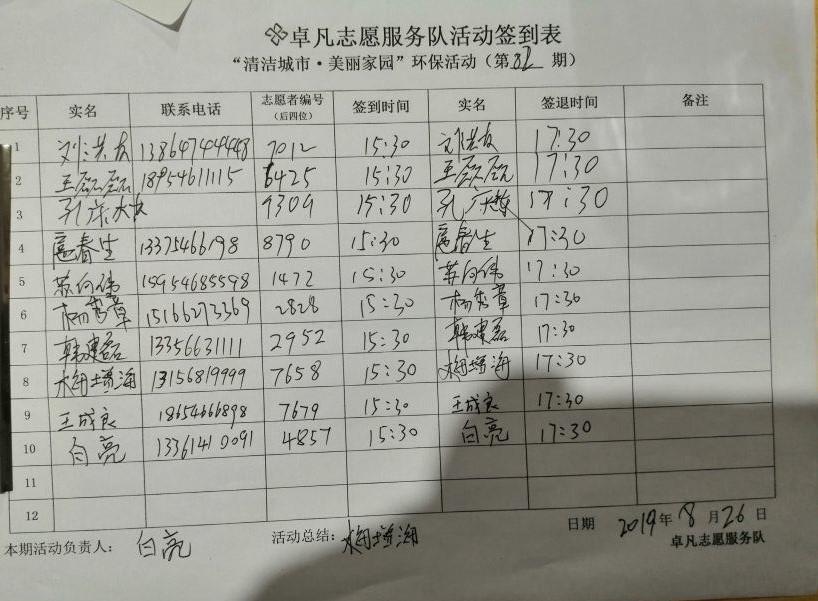 卓凡志愿服务队活动签到表
“清洁城市·美丽家园”环保活动（第32期）
序号 实名 联系电话 志愿者编号（后四位） 签到时间 实名 签退时间 备注
1 刘洪友 13864744448 7012 15:30 刘洪友 17:30
2 王磊磊 18954611115 6425 15:30 王磊磊 17:30
3 9309 15:30 17:30
4 扈春生 13375466198 8790 15:30 扈春生 17:30
5 苏向伟 15954685598 1472 15:30 苏向伟 17:30
6 杨秀章 15166273369 2828 15:30 杨秀章 17:30
7 韩建磊 13356631111 2952 15:30 韩建磊 17:30
8 梅增海 13156819999 7658 15:30 梅增海 17:30
9 王成良 18654666898 7679 15:30 王成良 17:30
10 白亮 13361410091 4857 15:30 白亮 17:30
11
12
本期活动负责人： 白亮 活动总结： 梅增海 日期 2019年8月26日
卓凡志愿服务队